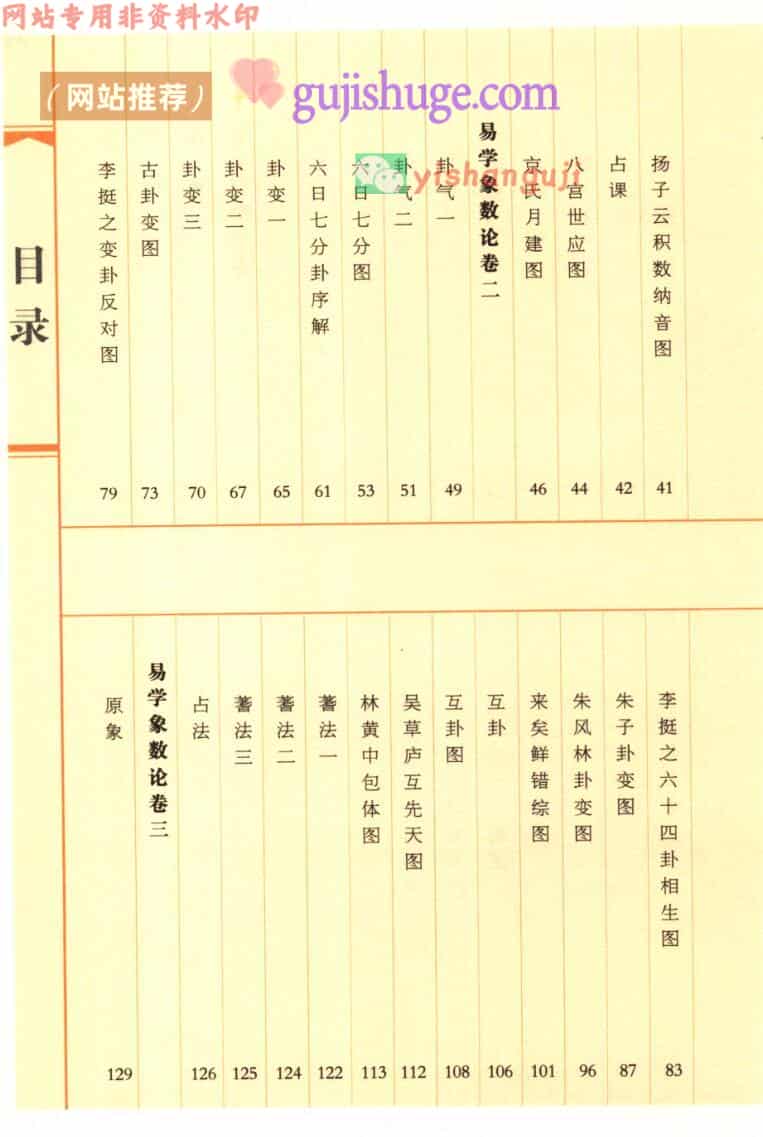 网站专用非资料水印
（网站推荐）
gujishuge.com
yishanguji
目录
扬子云积数纳音图 41
占课 42
八宫世应图 44
京氏月建图 46
易学象数论卷二
卦气一 49
卦气二 51
六日七分图 53
六日七分卦序解 61
卦变一 65
卦变二 67
卦变三 70
古卦变图 73
李挺之变卦反对图 79
李挺之六十四卦相生图 83
朱子卦变图 87
朱风林卦变图 96
来矣鲜错综图 101
互卦 106
互卦图 108
吴草庐互先天图 112
林黄中包体图 113
蓍法一 122
蓍法二 124
蓍法三 125
占法 126
易学象数论卷三
原象 129